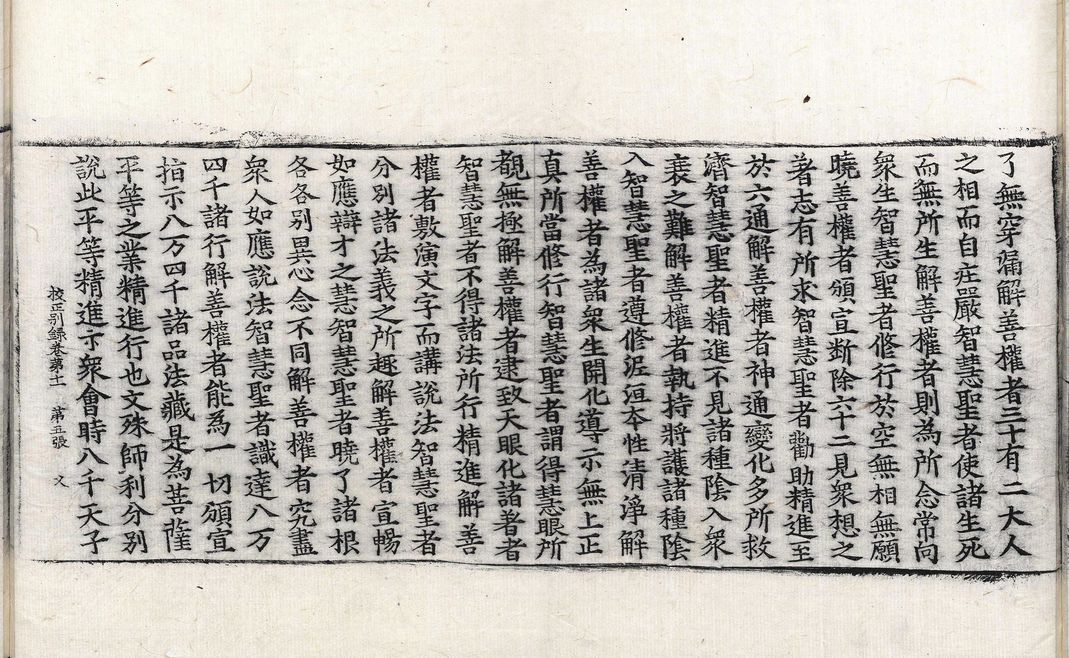 了無穿漏解善權者三十有二大人
之相而自庄嚴智慧聖者使諸生死
而無所生解善權者則為所念常向
衆生智慧聖者修行於空無相無願
曉善權者頒宣断除六十二見衆想之
著志有所求智慧聖者勸助精進至
於六通解善權者神通變化多所救
濟智慧聖者精進不見諸種陰入衆
衰之難解善權者執持將護諸種陰
入智慧聖者遵修泥洹本性清淨解
善權者為諸衆生開化導示無上正
真所當修行智慧聖者謂得慧眼所
覩無極解善權者逮致天眼化諸著者
智慧聖者不得諸法所行精進解善
權者敷演文字而講說法智慧聖者
分別諸法義之所趣解善權者宣暢
如應辯才之慧智慧聖者曉了諸根
各各別異心念不同解善權者究盡
衆人如應說法智慧聖者識達八万
四千諸行解善權者能為一切頒宣
指示八万四千諸品法藏是為菩薩
平等之業精進行也文殊師利分別
說此平等精進示衆會時八千天子
校正別録卷第十一 第五張